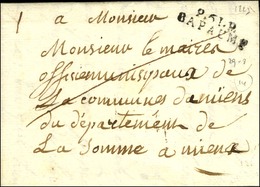 1 a Monsieur
P.61.P.
BAPAUME
Monsieur le maires
officiermunisipaux de
La communes damiens
du département de
La Somme a miens